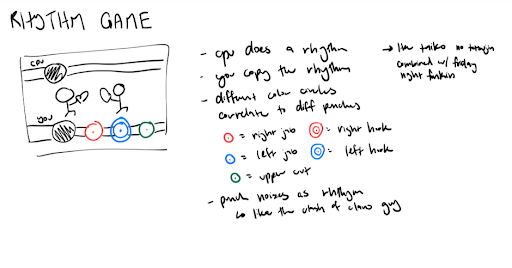 RHYTHM GAME
CPU
YOU
- cpu does a rhythm
- you copy the rhythm
- different color circles
correlate to diff punches
= right jab
= right hook
= left jab
= left hook
= upper cut
- punch noizes as rhythm
↳ like the clash of clans guy
→ like taiko no tatsujin
combined w/ friday
night funkin